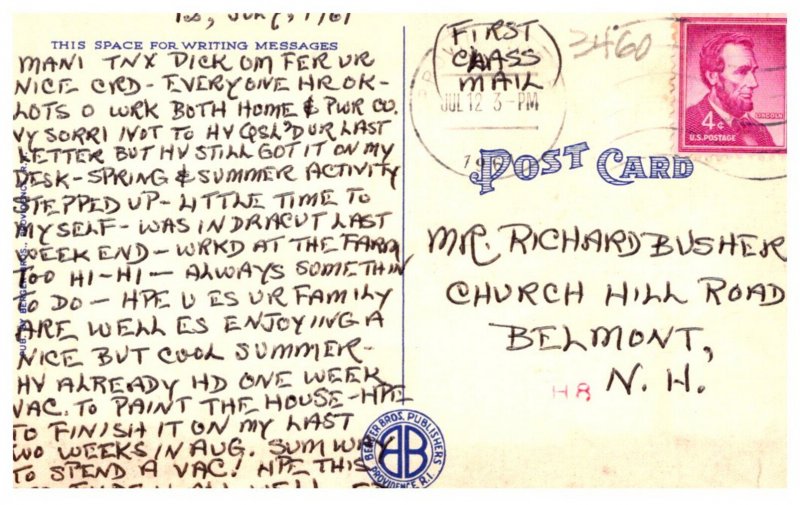 THIS SPACE FOR WRITING MESSAGES
MANI TNX DICK OM FER UR
NICE CRD - EVERYONE HR OK -
LOTS O WRK BOTH HOME & PWR CO.
VY SORRI NOT TO HV QSL'D UR LAST
LETTER BUT HV STILL GOT IT ON MY
DESK - SPRING & SUMMER ACTIVITY
STEPPED UP - LITTLE TIME TO
MYSELF - WAS IN DRACUT LAST
WEEK END - WRKD AT THE FARM
TOO HI - HI - ALWAYS SOMETHIN
TO DO - HPE U ES UR FAMILY
ARE WELL ES ENJOYING A
NICE BUT COOL SUMMER -
HV ALREADY HD ONE WEEK
VAC. TO PAINT THE HOUSE - HPE
TO FINISH IT ON MY LAST
TWO WEEKS IN AUG. SUM WAY
TO SPEND A VAC! HPE THIS
PUB. BY BERGER BROS., PROVIDENCE, R.I.
(FIRST
CLASS
MAIL)
JUL 12 3-PM
3460
4¢
LINCOLN
U.S. POSTAGE
POST CARD
MR. RICHARD BUSHER
CHURCH HILL ROAD
BELMONT,
N. H.
H8
BERGER BROS. PUBLISHERS
BB
PROVIDENCE R.I.